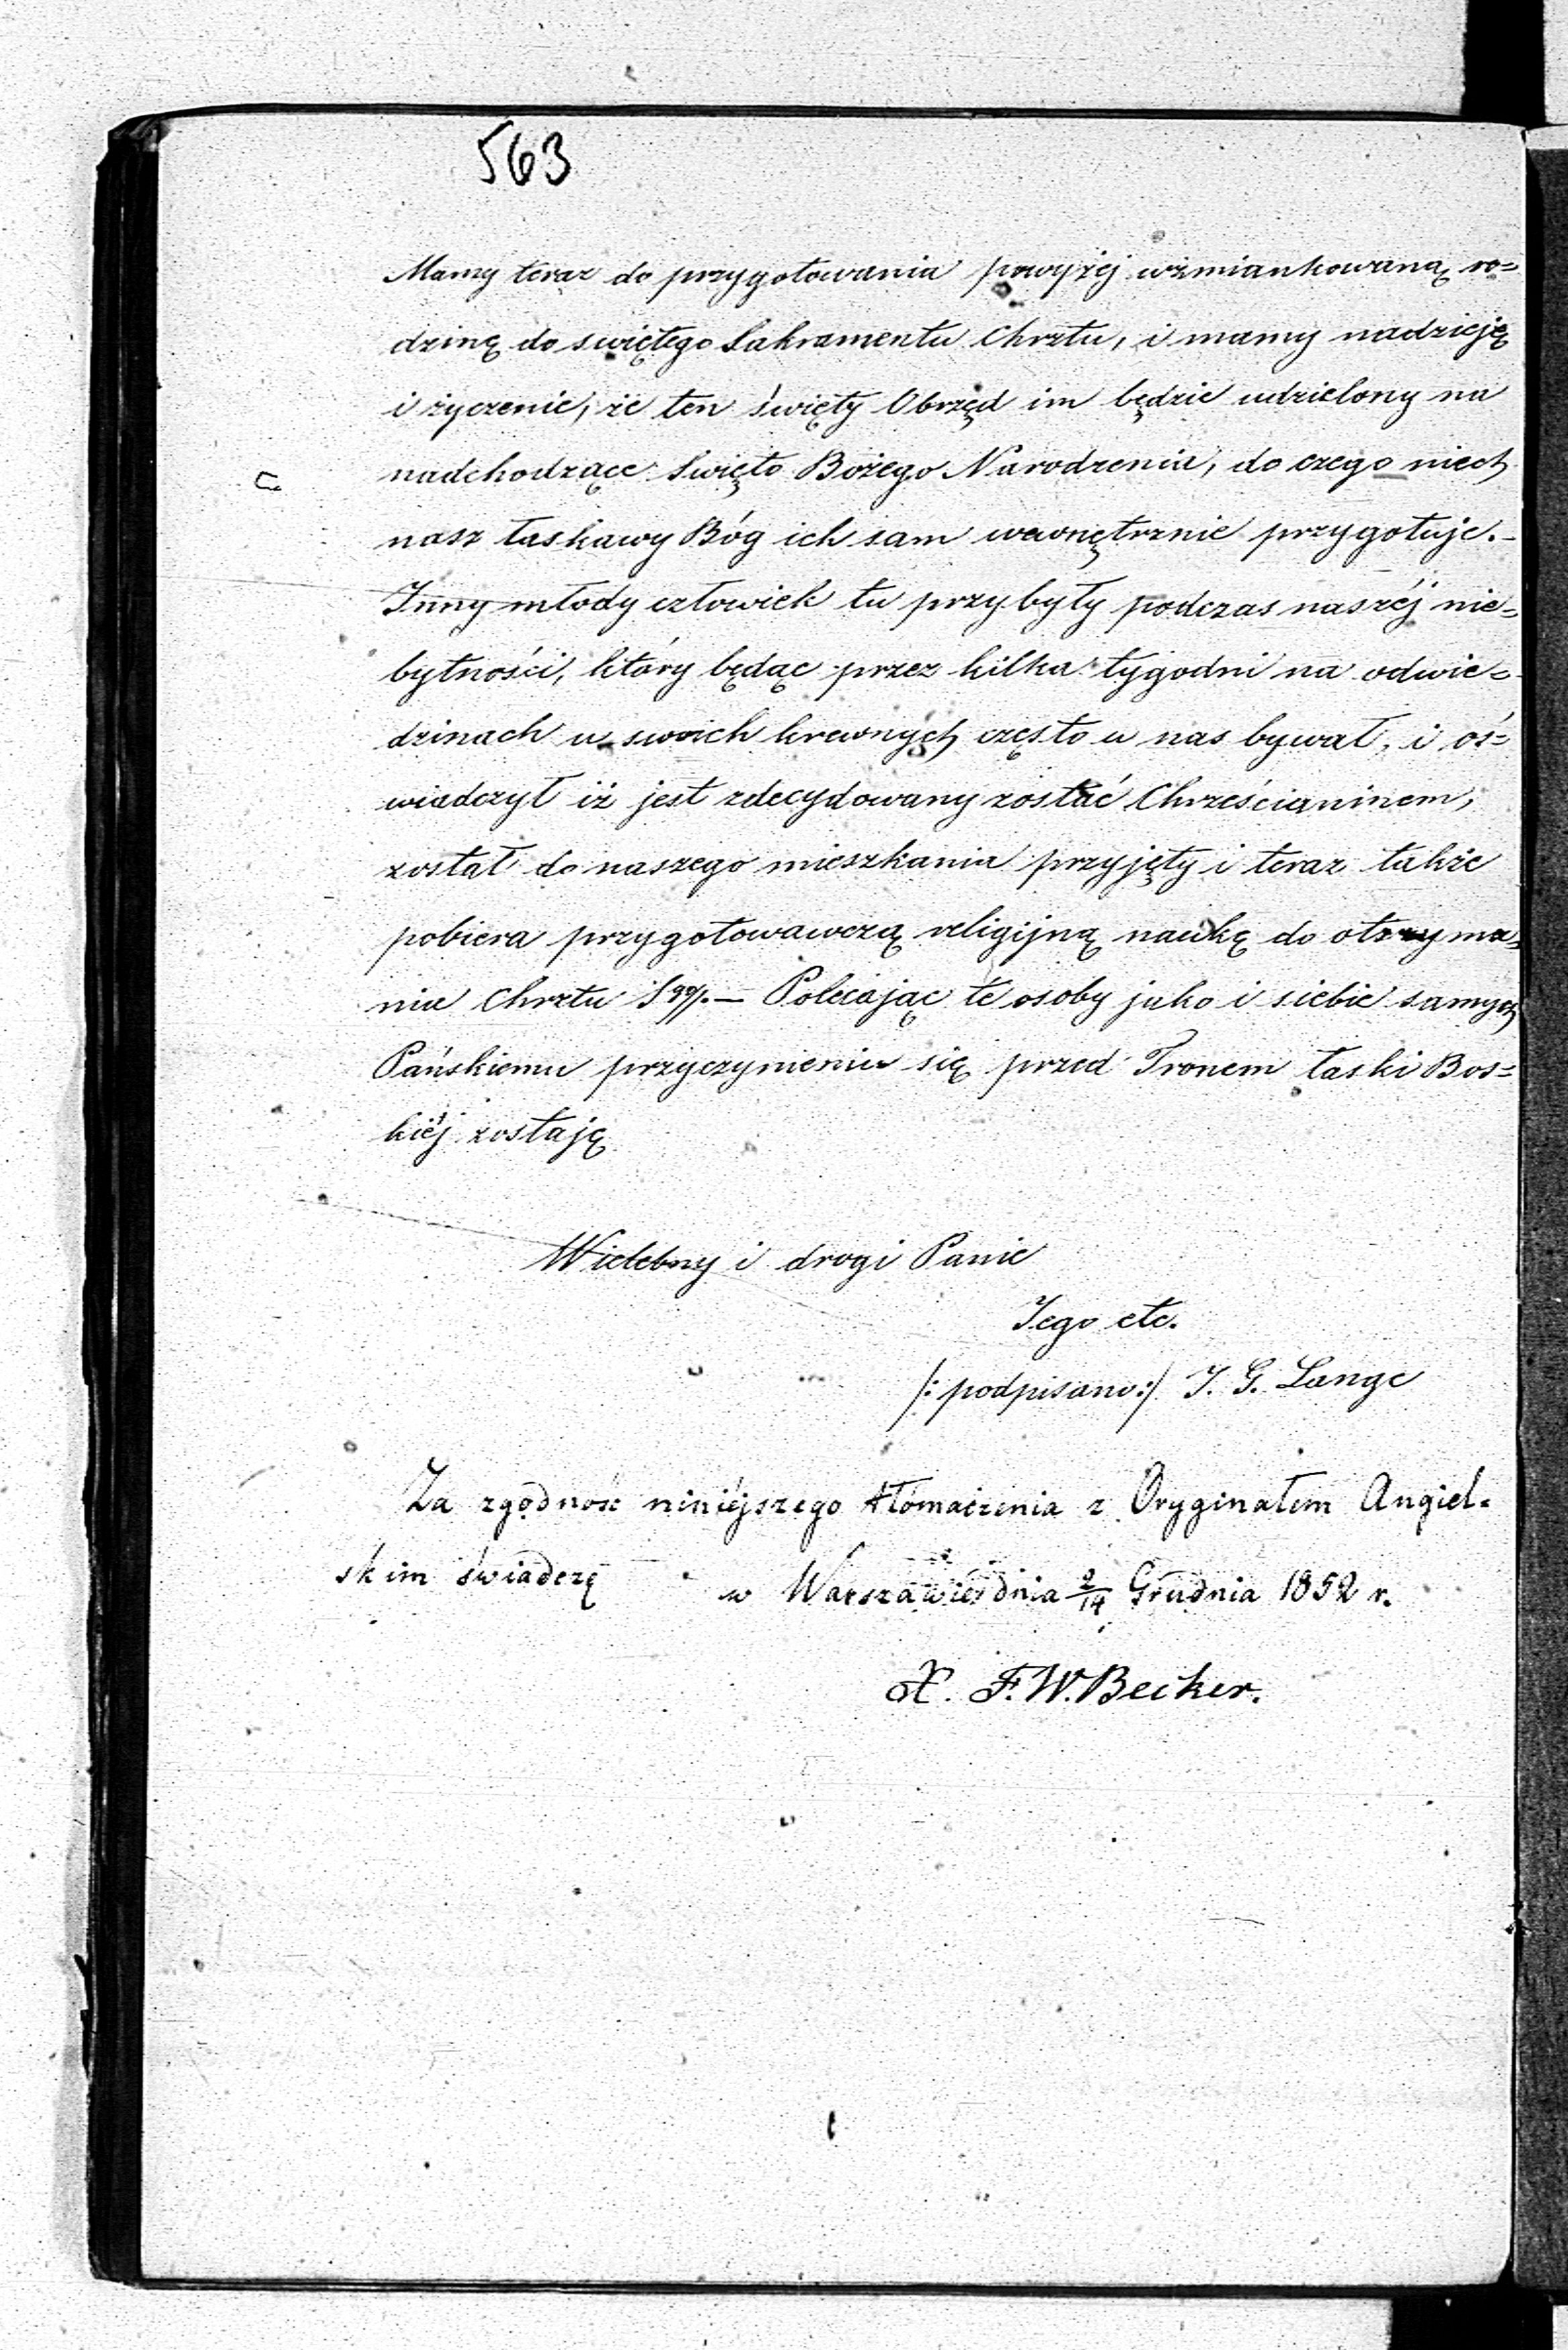 563
Mamy teraz do przygotowania powyżej wzmiankowaną ro=
dzinę do swiętego Sakramentu Chrztu, i mamy nadzieję
i życzenie, że ten święty Obrzęd im będzie udzielony na
nadchodzące Swięto Bożego Narodzenia, do czego niech
nasz łaskawy Bóg ich sam wewnętrznie przygotuje.-
Inny młody człowiek tu przybyły podczas naszéj nie=
bytności, który będąc przez kilka tygodni na odwie=
dzinach u swoich krewnych często u nas bywał, i oś=
wiadczył iż jest zdecydowany zostać Chrześcianinem,
został do naszego mieszkania przyjęty i teraz także
pobiera przygotowawczą religijną naukę do otrzyma=
nia Chrztu Sgo.— Polecając te osoby jako i siebie samych
Pańskiemu przyczynieniu się przed Tronem łaski Bos=
kiéj zostaję
Wielebny i drogi Panie
Jego etc.
/: podpisano :/ J. G. Lange
Za zgodność niniéjszego tłómaczenia z Oryginałem Angiel=
skim świadczę w Warszawie dnia 2/14 Grudnia 1852 r.
X. F. W. Becker.